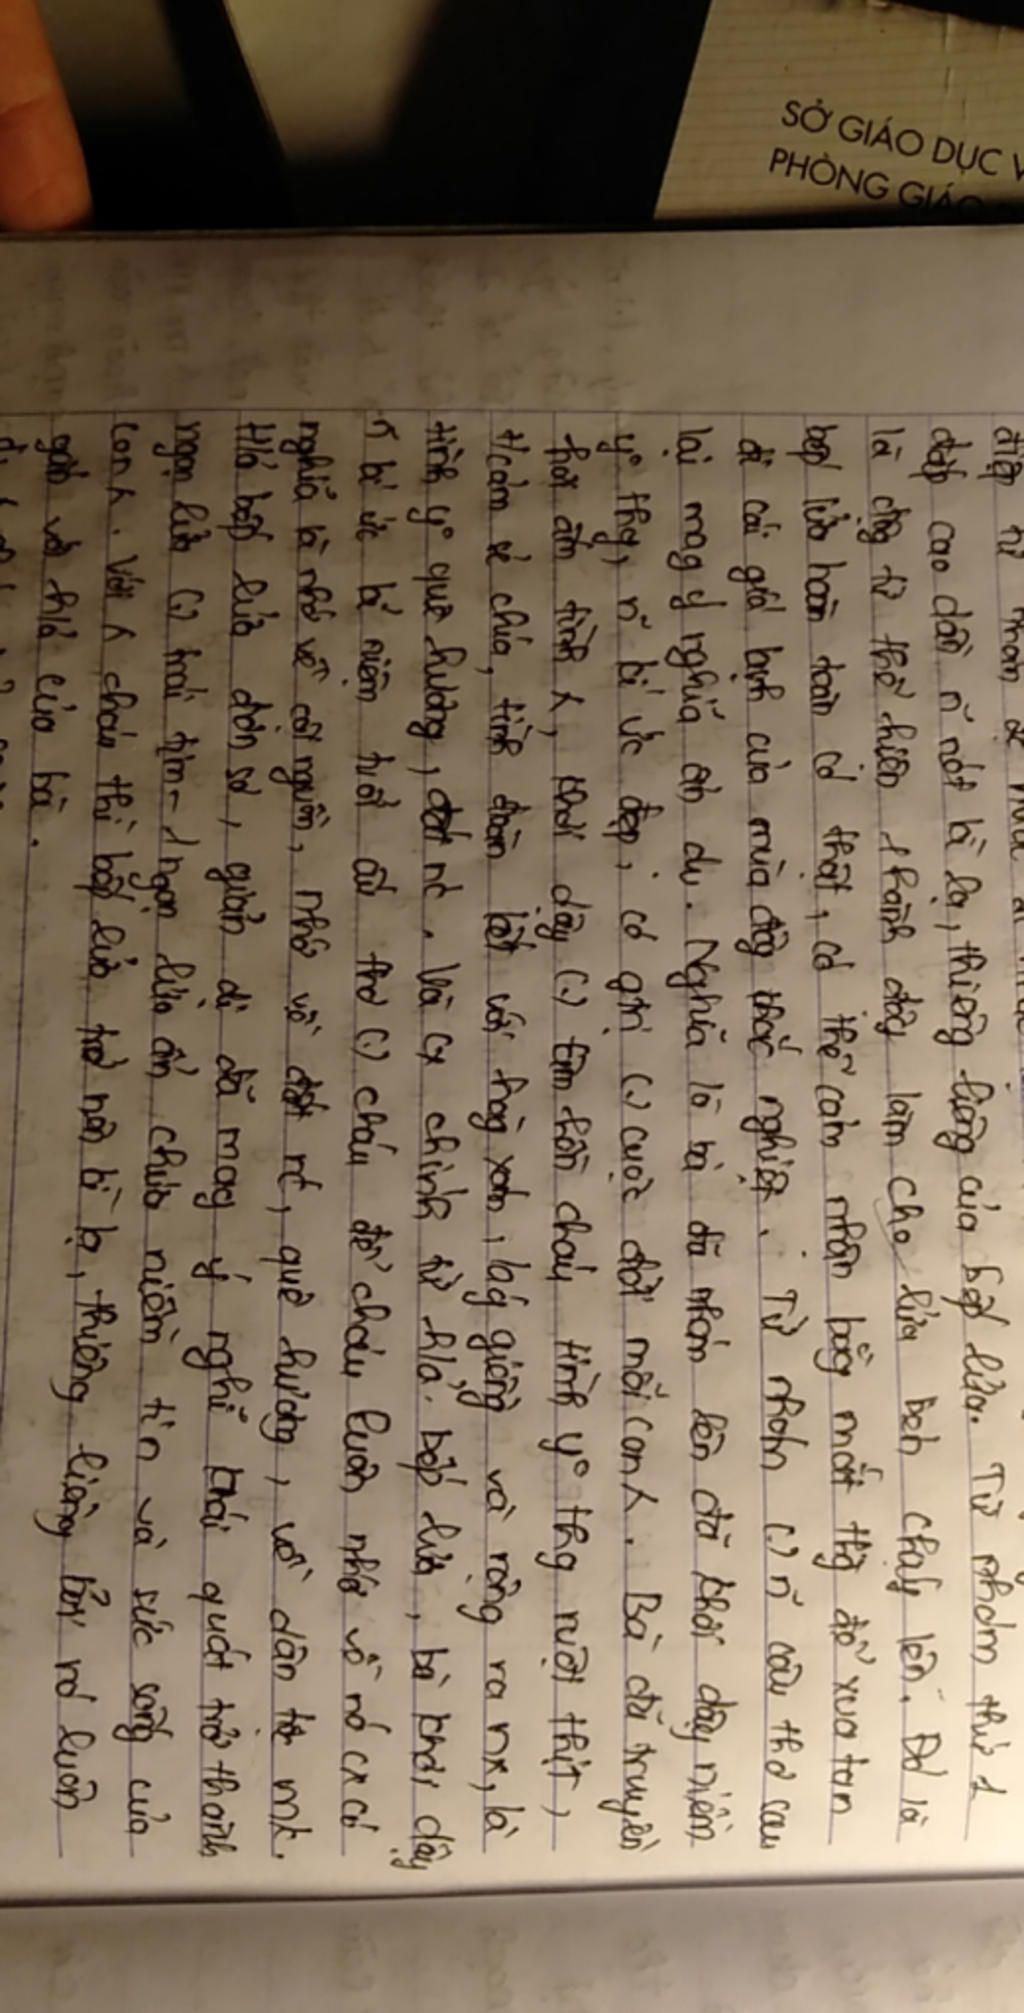 SỞ GIÁO DỤC V
PHÒNG GIÁO
điệp từ
đáp cao dần ñ nót là lạ, thiêng liêng của bếp lửa. Từ nhóm thứ 1
là động từ thể hiện 1 hành động làm cho lửa bén cháy lên. Đó là
bếp lửa hoàn toàn có thật, có thể cảm nhận bằng mắt thg để xua tan
đi cái giá lạnh của mùa đông khắc nghiệt. Từ nhóm (.) ñ câu thơ sau
lại mang ý nghĩa ẩn dụ. Nghĩa là bà đã nhóm lên đã khơi dậy niềm
yº thg, ñ kí ức đẹp, có gtrị (.) cuộc đời mỗi con λ. Bà đã truyền
hơi ấm tình λ, khơi dậy (.) tâm hồn cháu tình yº thg ruột thịt,
t/cảm sẻ chia, tình đoàn kết với hàng xóm, láng giềng và rộng ra nx, là
tình yº quê hương, đất nc. Và cx chính từ h/ả bếp lửa, bà khơi dậy
ñ kí ức kỉ niệm tuổi ấu thơ (.) cháu để cháu luôn nhớ về nó cx có
nghĩa là nhớ về cội nguồn, nhớ về đất nc, quê hương, về dân tộc mk.
H/ả bếp lửa đơn sơ, giản dị đã mang ý nghĩ khái quát trở thành
ngọn lửa (.) trái tim - 1 ngọn lửa ẩn chứa niềm tin và sức sống của
con λ. Với λ cháu thì bếp lửa trở nên kì lạ, thiêng liêng bởi nó luôn
gắn với h/ả của bà.